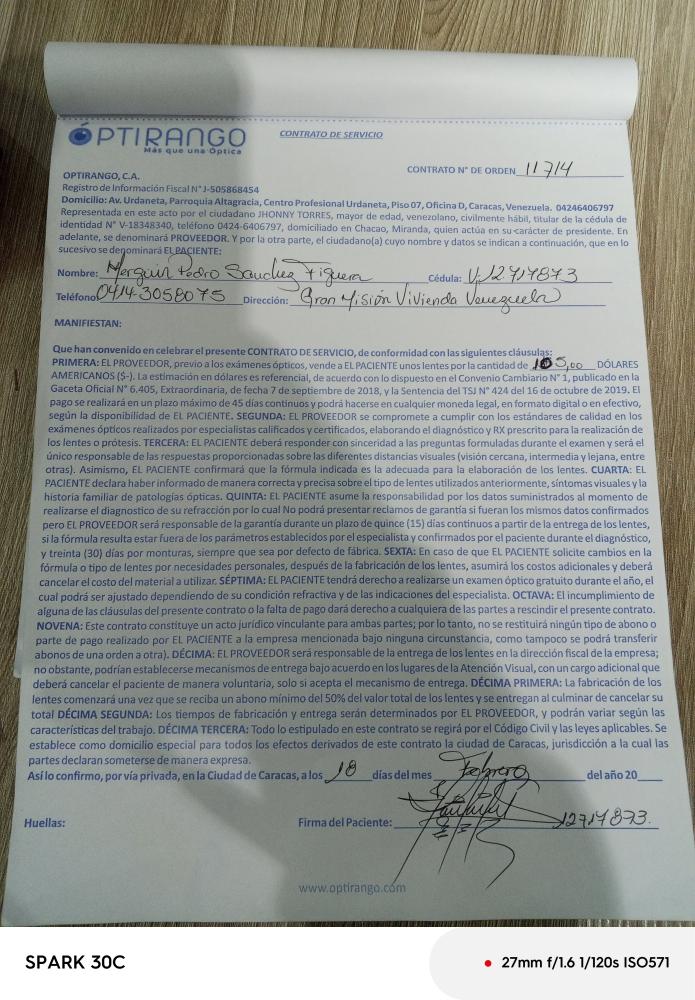 ÓPTIRANGO
Más que una Óptica
CONTRATO DE SERVICIO
CONTRATO N° DE ORDEN 11714
OPTIRANGO, C.A.
Registro de Información Fiscal N° J-505868454
Domicilio: Av. Urdaneta, Parroquia Altagracia, Centro Profesional Urdaneta, Piso 07, Oficina D, Caracas, Venezuela. 04246406797
Representada en este acto por el ciudadano JHONNY TORRES, mayor de edad, venezolano, civilmente hábil, titular de la cédula de
identidad N° V-18348340, teléfono 0424-6406797, domiciliado en Chacao, Miranda, quien actúa en su carácter de presidente. En
adelante, se denominará PROVEEDOR. Y por la otra parte, el ciudadano(a) cuyo nombre y datos se indican a continuación, que en lo
sucesivo se denominará EL PACIENTE:
Nombre: Merquin Pedro Sanchez Figuera Cédula: V-12717873
Teléfono: 0414-3058075 Dirección: Gran Misión Vivienda Venezuela
MANIFIESTAN:
Que han convenido en celebrar el presente CONTRATO DE SERVICIO, de conformidad con las siguientes cláusulas:
PRIMERA: EL PROVEEDOR, previo a los exámenes ópticos, vende a EL PACIENTE unos lentes por la cantidad de 105,00 DÓLARES
AMERICANOS ($-). La estimación en dólares es referencial, de acuerdo con lo dispuesto en el Convenio Cambiario N° 1, publicado en la
Gaceta Oficial N° 6.405, Extraordinaria, de fecha 7 de septiembre de 2018, y la Sentencia del TSJ N° 424 del 16 de octubre de 2019. El
pago se realizará en un plazo máximo de 45 días continuos y podrá hacerse en cualquier moneda legal, en formato digital o en efectivo,
según la disponibilidad de EL PACIENTE. SEGUNDA: EL PROVEEDOR se compromete a cumplir con los estándares de calidad en los
exámenes ópticos realizados por especialistas calificados y certificados, elaborando el diagnóstico y RX prescrito para la realización de
los lentes o prótesis. TERCERA: EL PACIENTE deberá responder con sinceridad a las preguntas formuladas durante el examen y será el
único responsable de las respuestas proporcionadas sobre las diferentes distancias visuales (visión cercana, intermedia y lejana, entre
otras). Asimismo, EL PACIENTE confirmará que la fórmula indicada es la adecuada para la elaboración de los lentes. CUARTA: EL
PACIENTE declara haber informado de manera correcta y precisa sobre el tipo de lentes utilizados anteriormente, síntomas visuales y la
historia familiar de patologías ópticas. QUINTA: EL PACIENTE asume la responsabilidad por los datos suministrados al momento de
realizarse el diagnóstico de su refracción por lo cual No podrá presentar reclamos de garantía si fueran los mismos datos confirmados
pero EL PROVEEDOR será responsable de la garantía durante un plazo de quince (15) días continuos a partir de la entrega de los lentes,
si la fórmula resulta estar fuera de los parámetros establecidos por el especialista y confirmados por el paciente durante el diagnóstico,
y treinta (30) días por monturas, siempre que sea por defecto de fábrica. SEXTA: En caso de que EL PACIENTE solicite cambios en la
fórmula o tipo de lentes por necesidades personales, después de la fabricación de los lentes, asumirá los costos adicionales y deberá
cancelar el costo del material a utilizar. SÉPTIMA: EL PACIENTE tendrá derecho a realizarse un examen óptico gratuito durante el año, el
cual podrá ser ajustado dependiendo de su condición refractiva y de las indicaciones del especialista. OCTAVA: El incumplimiento de
alguna de las cláusulas del presente contrato o la falta de pago dará derecho a cualquiera de las partes a rescindir el presente contrato.
NOVENA: Este contrato constituye un acto jurídico vinculante para ambas partes; por lo tanto, no se restituirá ningún tipo de abono o
parte de pago realizado por EL PACIENTE a la empresa mencionada bajo ninguna circunstancia, como tampoco se podrá transferir
abonos de una orden a otra). DÉCIMA: EL PROVEEDOR será responsable de la entrega de los lentes en la dirección fiscal de la empresa;
no obstante, podrían establecerse mecanismos de entrega bajo acuerdo en los lugares de la Atención Visual, con un cargo adicional que
deberá cancelar el paciente de manera voluntaria, solo si acepta el mecanismo de entrega. DÉCIMA PRIMERA: La fabricación de los
lentes comenzará una vez que se reciba un abono mínimo del 50% del valor total de los lentes y se entregan al culminar de cancelar su
total DÉCIMA SEGUNDA: Los tiempos de fabricación y entrega serán determinados por EL PROVEEDOR, y podrán variar según las
características del trabajo. DÉCIMA TERCERA: Todo lo estipulado en este contrato se regirá por el Código Civil y las leyes aplicables. Se
establece como domicilio especial para todos los efectos derivados de este contrato la ciudad de Caracas, jurisdicción a la cual las
partes declaran someterse de manera expresa.
Así lo confirmo, por vía privada, en la Ciudad de Caracas, a los 18 días del mes Febrero del año 20
Huellas:
Firma del Paciente: 12717873.
www.optirango.com
SPARK 30C
27mm f/1.6 1/120s ISO571